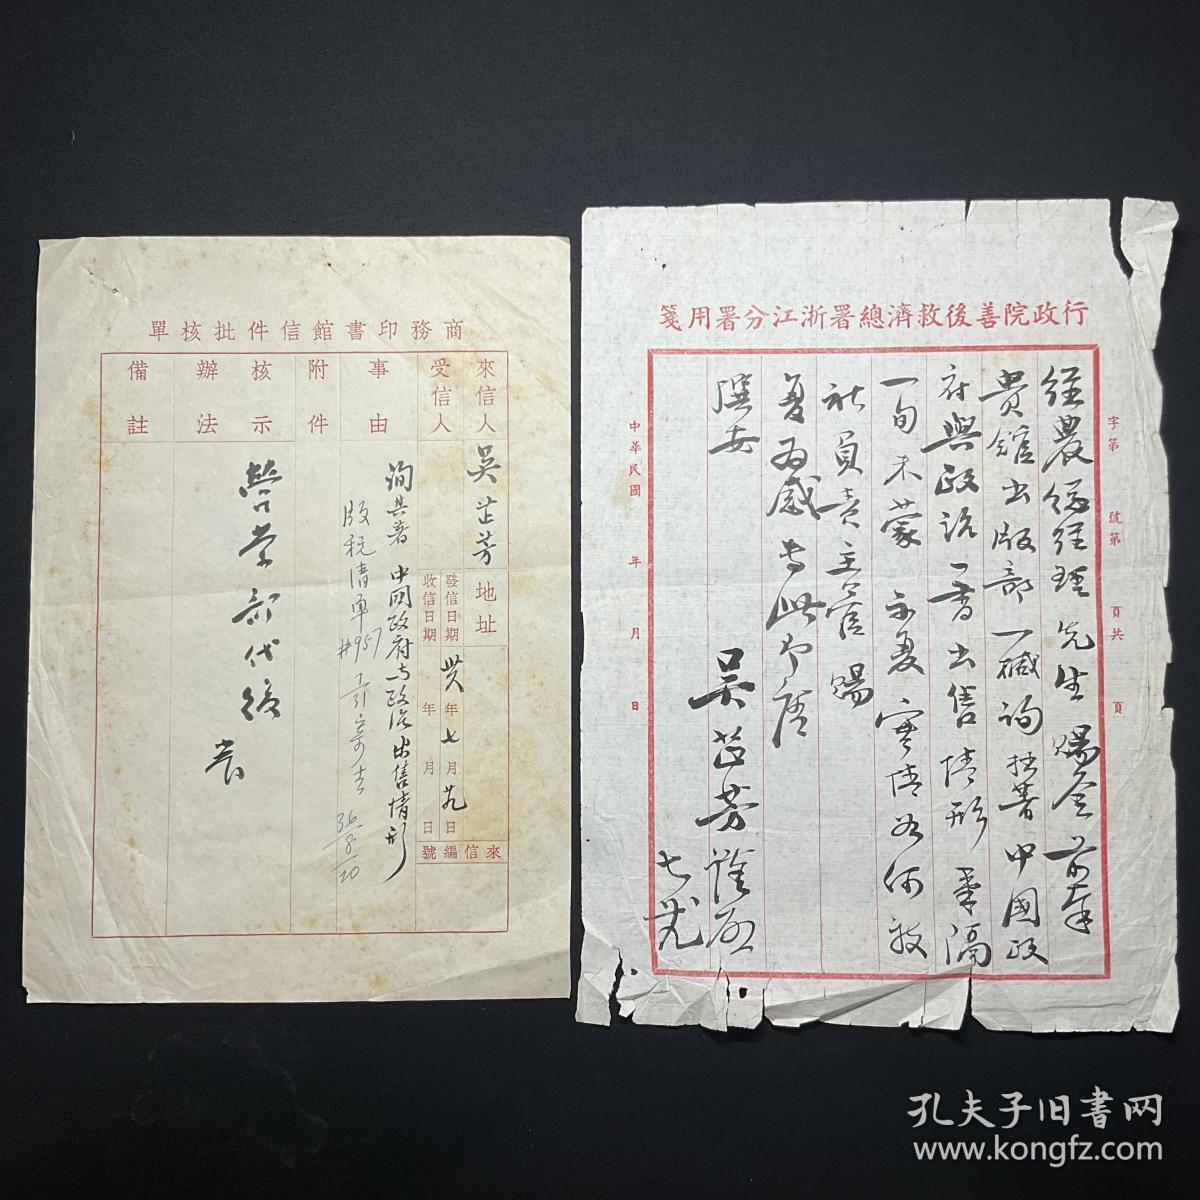 行政院善後救濟總署浙江分署用箋
字第 號第 頁共 頁
經農總經理先生賜鑒前奉
貴館出版部一緘詢拙著中國政
府與政治一書出售情形事隔
一旬未蒙示复實情如何敬
社員責主管賜
复為感专此即唐
撰安
吴芷芳謹啟
七廿九
中華民國 年 月 日
商務印書館信件批核單
來信人
吴芷芳
地址
受信人
發信日期
卅六年七月廿九日
收信日期
年 月 日
來信編號
事由
詢其著 中国政府与政治出售情形
版税清單#957
寄去
36/8/20
附件
核示
辦法
營業部代複
備註
孔夫子旧书网
www.kongfz.com